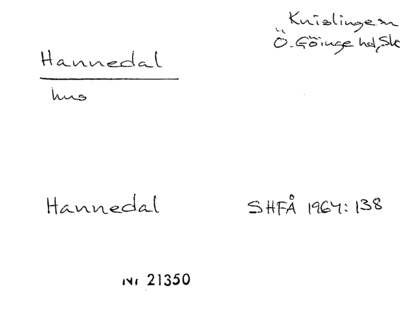 Knislinge sn
Ö. Göinge hd, Sk
Hannedal
hus
Hannedal SHFÅ 1964:138
21350